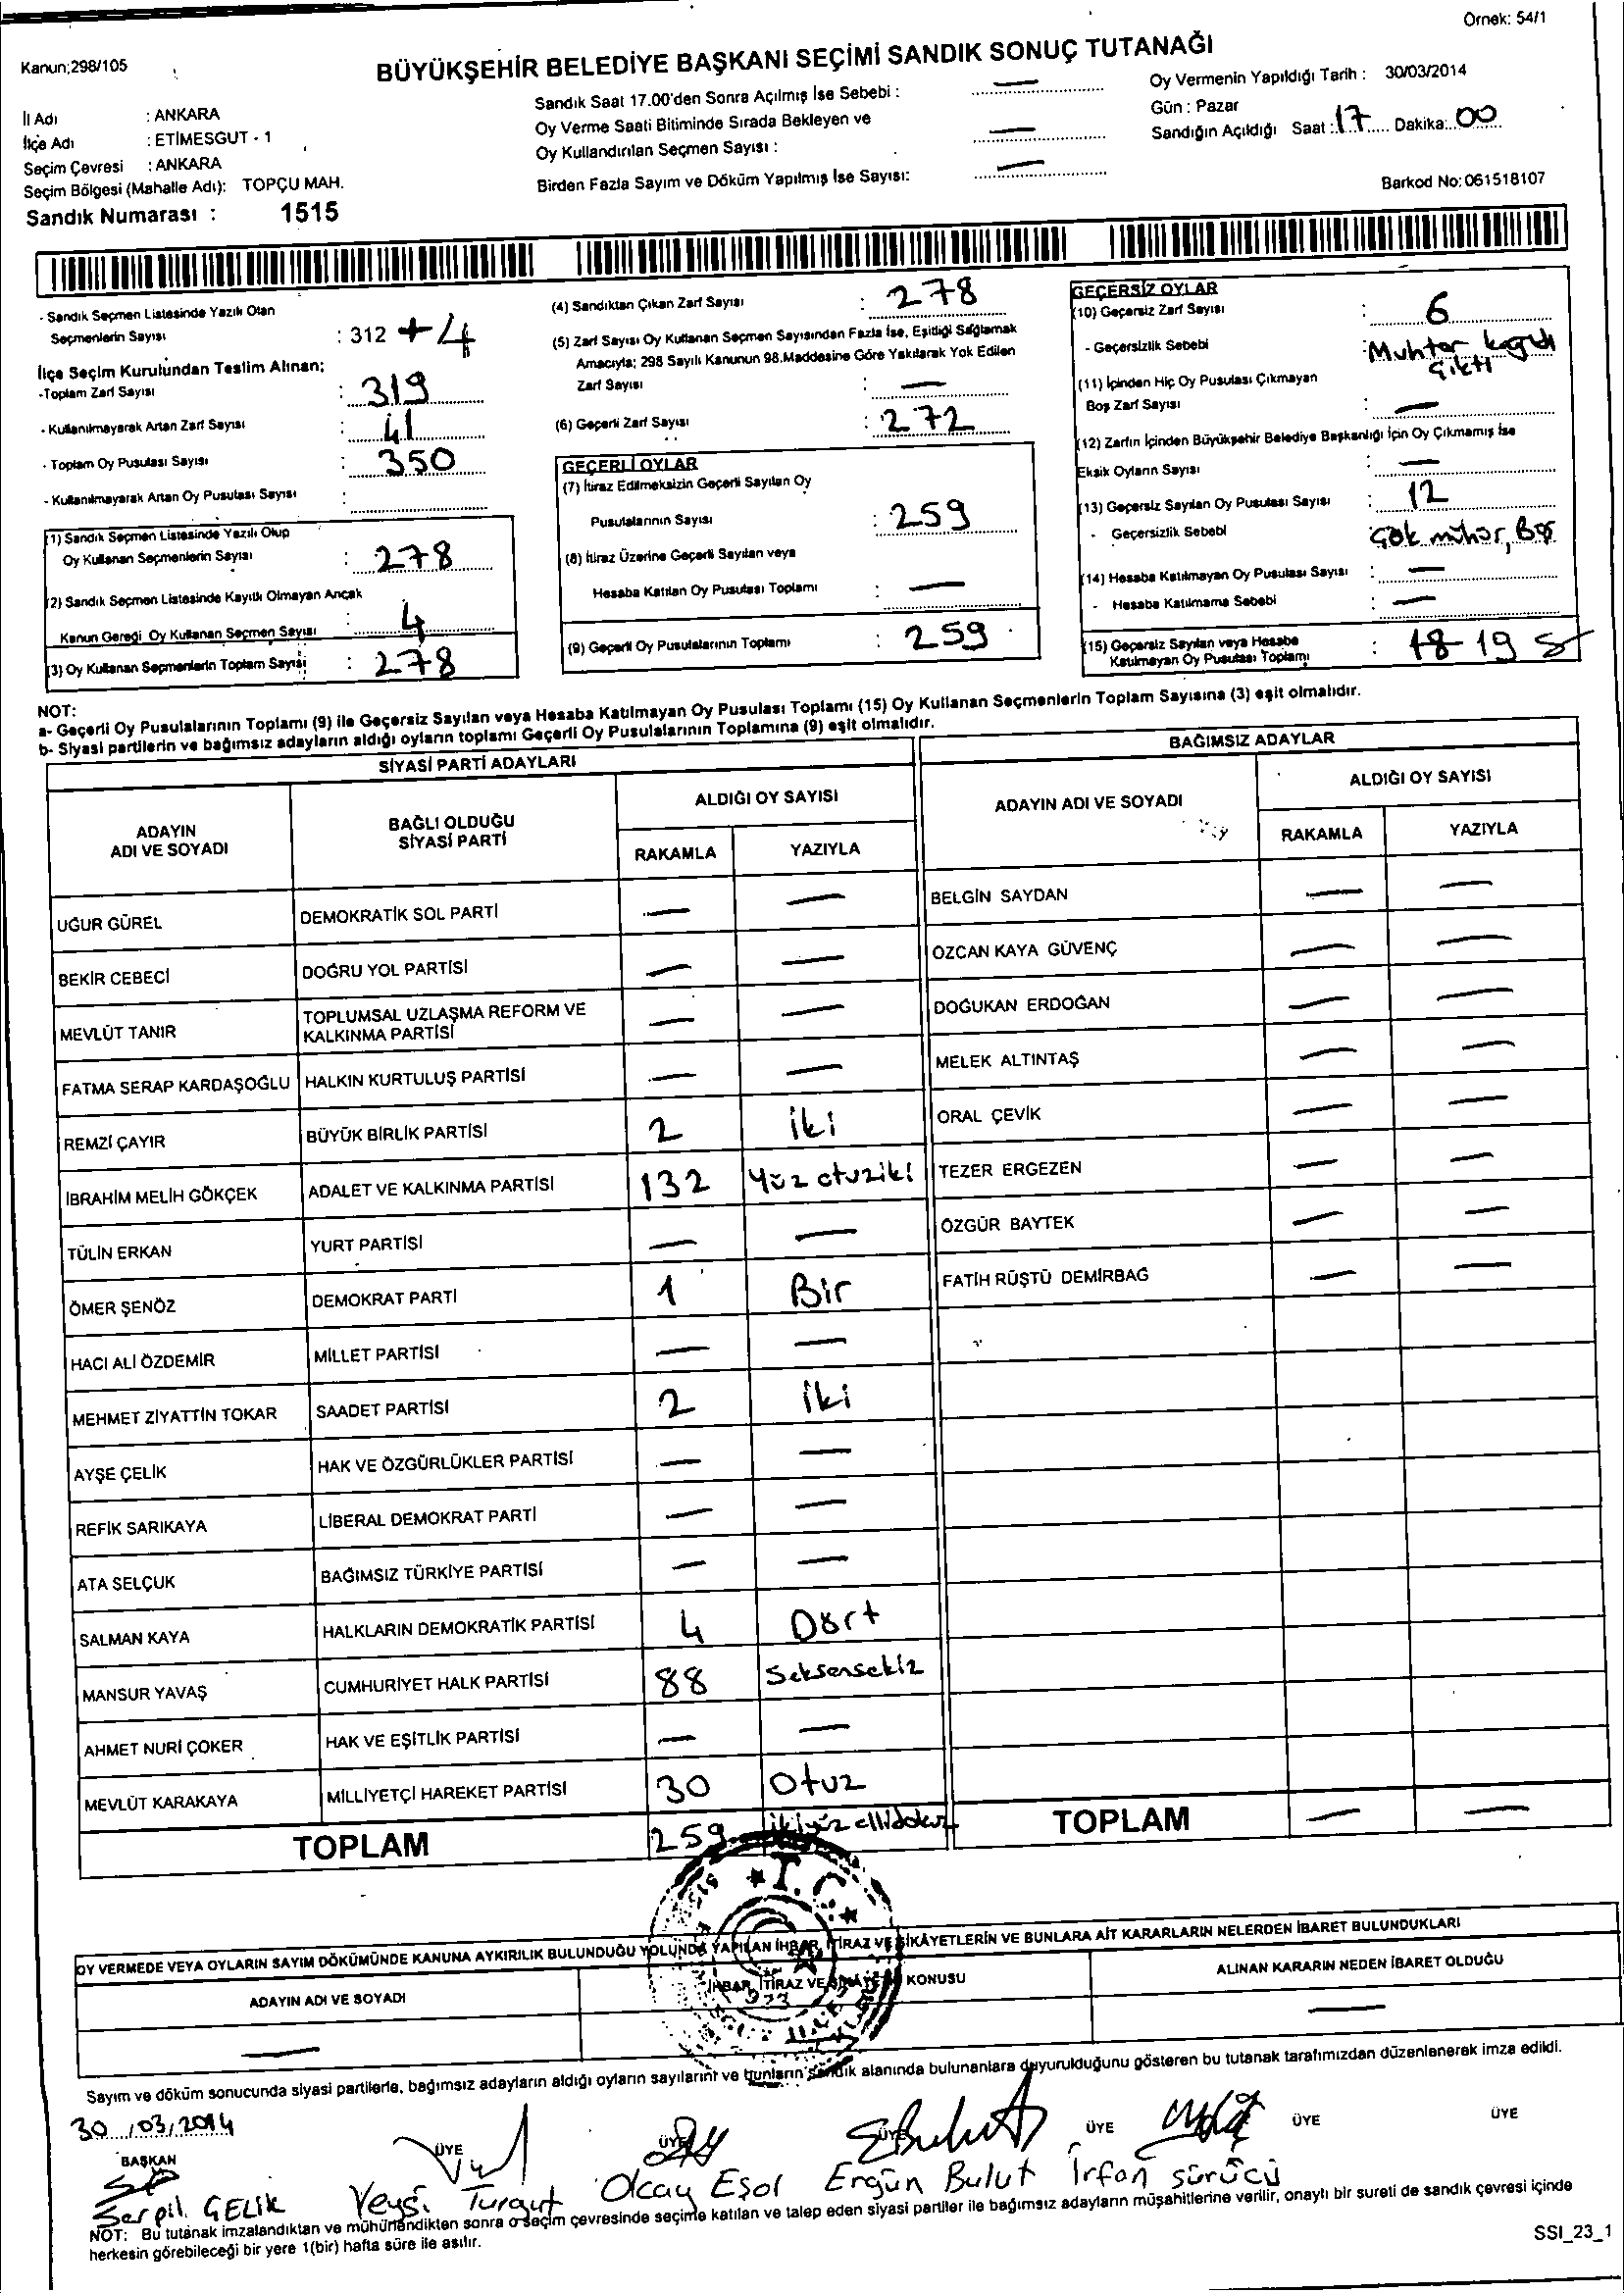 Örnek: 54/1
Kanun;298/105
BÜYÜKŞEHİR BELEDİYE BAŞKANI SEÇİMİ SANDIK SONUÇ TUTANAĞI
İl Adı : ANKARA
İlçe Adı : ETİMESGUT - 1
Seçim Çevresi : ANKARA
Seçim Bölgesi (Mahalle Adı): TOPÇU MAH.
Sandık Numarası : 1515
Sandık Saat 17.00'den Sonra Açılmış İse Sebebi : —
Oy Verme Saati Bitiminde Sırada Bekleyen ve
Oy Kullandırılan Seçmen Sayısı : —
Birden Fazla Sayım ve Döküm Yapılmış İse Sayısı: —
Oy Vermenin Yapıldığı Tarih : 30/03/2014
Gün : Pazar
Sandığın Açıldığı Saat : 17 Dakika: 00
Barkod No: 061518107
- Sandık Seçmen Listesinde Yazılı Olan
Seçmenlerin Sayısı : 312 + 4
İlçe Seçim Kurulundan Teslim Alınan;
-Toplam Zarf Sayısı : 319
- Kullanılmayarak Artan Zarf Sayısı : 41
- Toplam Oy Pusulası Sayısı : 350
- Kullanılmayarak Artan Oy Pusulası Sayısı :
(1) Sandık Seçmen Listesinde Yazılı Olup
Oy Kullanan Seçmenlerin Sayısı : 278
(2) Sandık Seçmen Listesinde Kayıtlı Olmayan Ancak
Kanun Gereği Oy Kullanan Seçmen Sayısı : 4
(3) Oy Kullanan Seçmenlerin Toplam Sayısı : 278
(4) Sandıktan Çıkan Zarf Sayısı : 278
(5) Zarf Sayısı Oy Kullanan Seçmen Sayısından Fazla İse, Eşitliği Sağlamak
Amacıyla; 298 Sayılı Kanunun 98.Maddesine Göre Yakılarak Yok Edilen
Zarf Sayısı : —
(6) Geçerli Zarf Sayısı : 272
GEÇERLİ OYLAR
(7) İtiraz Edilmeksizin Geçerli Sayılan Oy
Pusulalarının Sayısı : 259
(8) İtiraz Üzerine Geçerli Sayılan veya
Hesaba Katılan Oy Pusulası Toplamı : —
(9) Geçerli Oy Pusulalarının Toplamı : 259
GEÇERSİZ OYLAR
(10) Geçersiz Zarf Sayısı : 6
- Geçersizlik Sebebi : Muhtar kağıdı
çıktı
(11) İçinden Hiç Oy Pusulası Çıkmayan
Boş Zarf Sayısı : —
(12) Zarfın İçinden Büyükşehir Belediye Başkanlığı İçin Oy Çıkmamış İse
Eksik Oyların Sayısı : —
(13) Geçersiz Sayılan Oy Pusulası Sayısı : 12
- Geçersizlik Sebebi : Çok mühür, Boş
(14) Hesaba Katılmayan Oy Pusulası Sayısı : —
- Hesaba Katılmama Sebebi : —
(15) Geçersiz Sayılan veya Hesaba
Katılmayan Oy Pusulası Toplamı : 18 19
NOT:
a- Geçerli Oy Pusulalarının Toplamı (9) ile Geçersiz Sayılan veya Hesaba Katılmayan Oy Pusulası Toplamı (15) Oy Kullanan Seçmenlerin Toplam Sayısına (3) eşit olmalıdır.
b- Siyasi partilerin ve bağımsız adayların aldığı oyların toplamı Geçerli Oy Pusulalarının Toplamına (9) eşit olmalıdır.
SİYASİ PARTİ ADAYLARI
ADAYIN ADI VE SOYADI BAĞLI OLDUĞU SİYASİ PARTİ ALDIĞI OY SAYISI
RAKAMLA YAZIYLA
UĞUR GÜREL DEMOKRATİK SOL PARTİ — —
BEKİR CEBECİ DOĞRU YOL PARTİSİ — —
MEVLÜT TANIR TOPLUMSAL UZLAŞMA REFORM VE KALKINMA PARTİSİ — —
FATMA SERAP KARDAŞOĞLU HALKIN KURTULUŞ PARTİSİ — —
REMZİ ÇAYIR BÜYÜK BİRLİK PARTİSİ 2 iki
İBRAHİM MELİH GÖKÇEK ADALET VE KALKINMA PARTİSİ 132 Yüz otuziki
TÜLİN ERKAN YURT PARTİSİ — —
ÖMER ŞENÖZ DEMOKRAT PARTİ 1 Bir
HACI ALİ ÖZDEMİR MİLLET PARTİSİ — —
MEHMET ZİYATTİN TOKAR SAADET PARTİSİ 2 iki
AYŞE ÇELİK HAK VE ÖZGÜRLÜKLER PARTİSİ — —
REFİK SARIKAYA LİBERAL DEMOKRAT PARTİ — —
ATA SELÇUK BAĞIMSIZ TÜRKİYE PARTİSİ — —
SALMAN KAYA HALKLARIN DEMOKRATİK PARTİSİ 4 Dört
MANSUR YAVAŞ CUMHURİYET HALK PARTİSİ 88 Seksensekiz
AHMET NURİ ÇOKER HAK VE EŞİTLİK PARTİSİ — —
MEVLÜT KARAKAYA MİLLİYETÇİ HAREKET PARTİSİ 30 Otuz
TOPLAM 259 ikiyüz ellidokuz
BAĞIMSIZ ADAYLAR
ADAYIN ADI VE SOYADI ALDIĞI OY SAYISI
RAKAMLA YAZIYLA
BELGİN SAYDAN — —
ÖZCAN KAYA GÜVENÇ — —
DOĞUKAN ERDOĞAN — —
MELEK ALTINTAŞ — —
ORAL ÇEVİK — —
TEZER ERGEZEN — —
ÖZGÜR BAYTEK — —
FATİH RÜŞTÜ DEMİRBAĞ — —
TOPLAM — —
T.C.
OY VERMEDE VEYA OYLARIN SAYIM DÖKÜMÜNDE KANUNA AYKIRILIK BULUNDUĞU YOLUNDA YAPILAN İHBAR, İTİRAZ VE ŞİKÂYETLERİN VE BUNLARA AİT KARARLARIN NELERDEN İBARET BULUNDUKLARI
ADAYIN ADI VE SOYADI İHBAR, İTİRAZ VE ŞİKÂYETİN KONUSU ALINAN KARARIN NEDEN İBARET OLDUĞU
— —
Sayım ve döküm sonucunda siyasi partilerle, bağımsız adayların aldığı oyların sayılarını ve bunların sandık alanında bulunanlara duyurulduğunu gösteren bu tutanak tarafımızdan düzenlenerek imza edildi.
30/03/2014
BAŞKAN ÜYE ÜYE ÜYE ÜYE ÜYE ÜYE
Serpil ÇELİK Veysi Turgut Olcay Eşol Ergün Bulut İrfan Sürücü
NOT: Bu tutanak imzalandıktan ve mühürlendikten sonra o seçim çevresinde seçime katılan ve talep eden siyasi partiler ile bağımsız adayların müşahitlerine verilir, onaylı bir sureti de sandık çevresi içinde
herkesin görebileceği bir yere 1(bir) hafta süre ile asılır.
SSI_23_1